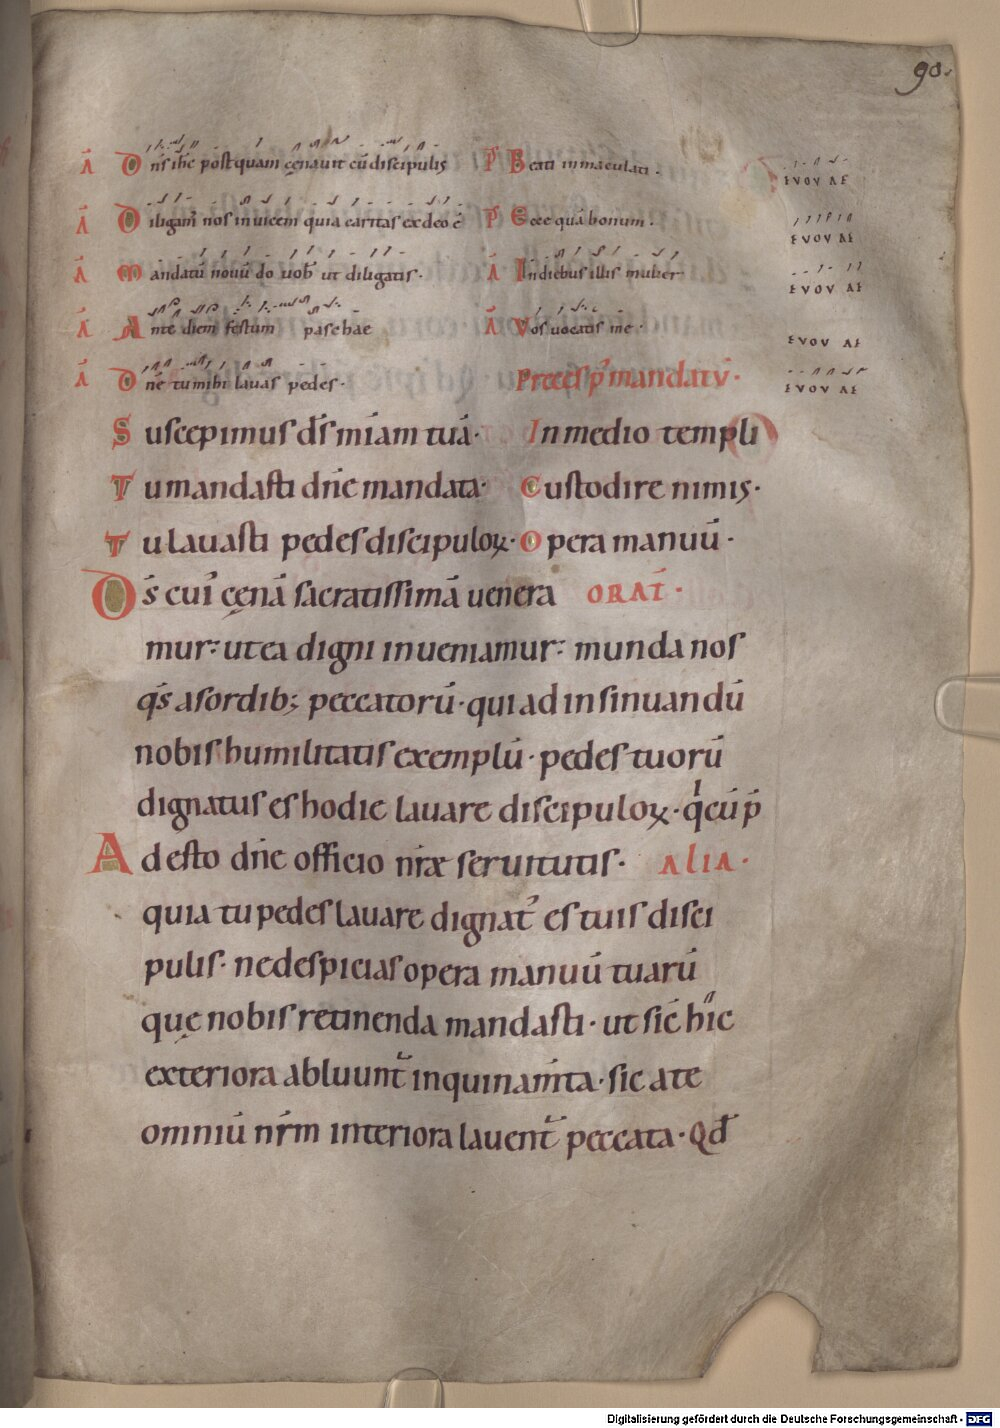 90.
Ā Dn̄s ih̄c postquam cęnauit cū discipulis P̄ Beati inmaculati. EVOVAE
Ā Diligam̄ nos inuicem quia caritas ex deo ē P̄ Ecce quā bonum. EVOVAE
Ā Mandatū nouū do uob̄ ut diligatis. Ā In diebus illis mulier EVOVAE
Ā Ante diem festum paschae Ā Vos uocatis me. EVOVAE
Ā Dn̄e tu mihi lauas pedes. Preces p̄ mandatū. EVOVAE
Suscepimus d̄s m̄iam tuā. In medio templi
Tu mandasti dn̄e mandata. Custodire nimis.
Tu lauasti pedes discipuloꝝ. Opera manuū.
Ds̄ cui᾽ cęnā sacratissimā uenera ORAT̄.
mur: ut ea digni inueniamur: munda nos
q̄s a sordib; peccatorū. qui ad insinuandū
nobis humilitatis exemplū. pedes tuorū
dignatus es hodie lauare discipuloꝝ. q̍ cū p̄
Adesto dn̄e officio nr̄ae seruitutis. ALIA.
quia tu pedes lauare dignat᾽ es tuis disci
pulis. ne despicias opera manuū tuarū
quę nobis retinenda mandasti. ut sic̄ hic
exteriora abluunt̄ inquinam̄ta. sic a te
omniū nr̄m interiora lauent̄ peccata. Qd̄
Digitalisierung gefördert durch die Deutsche Forschungsgemeinschaft - DFG